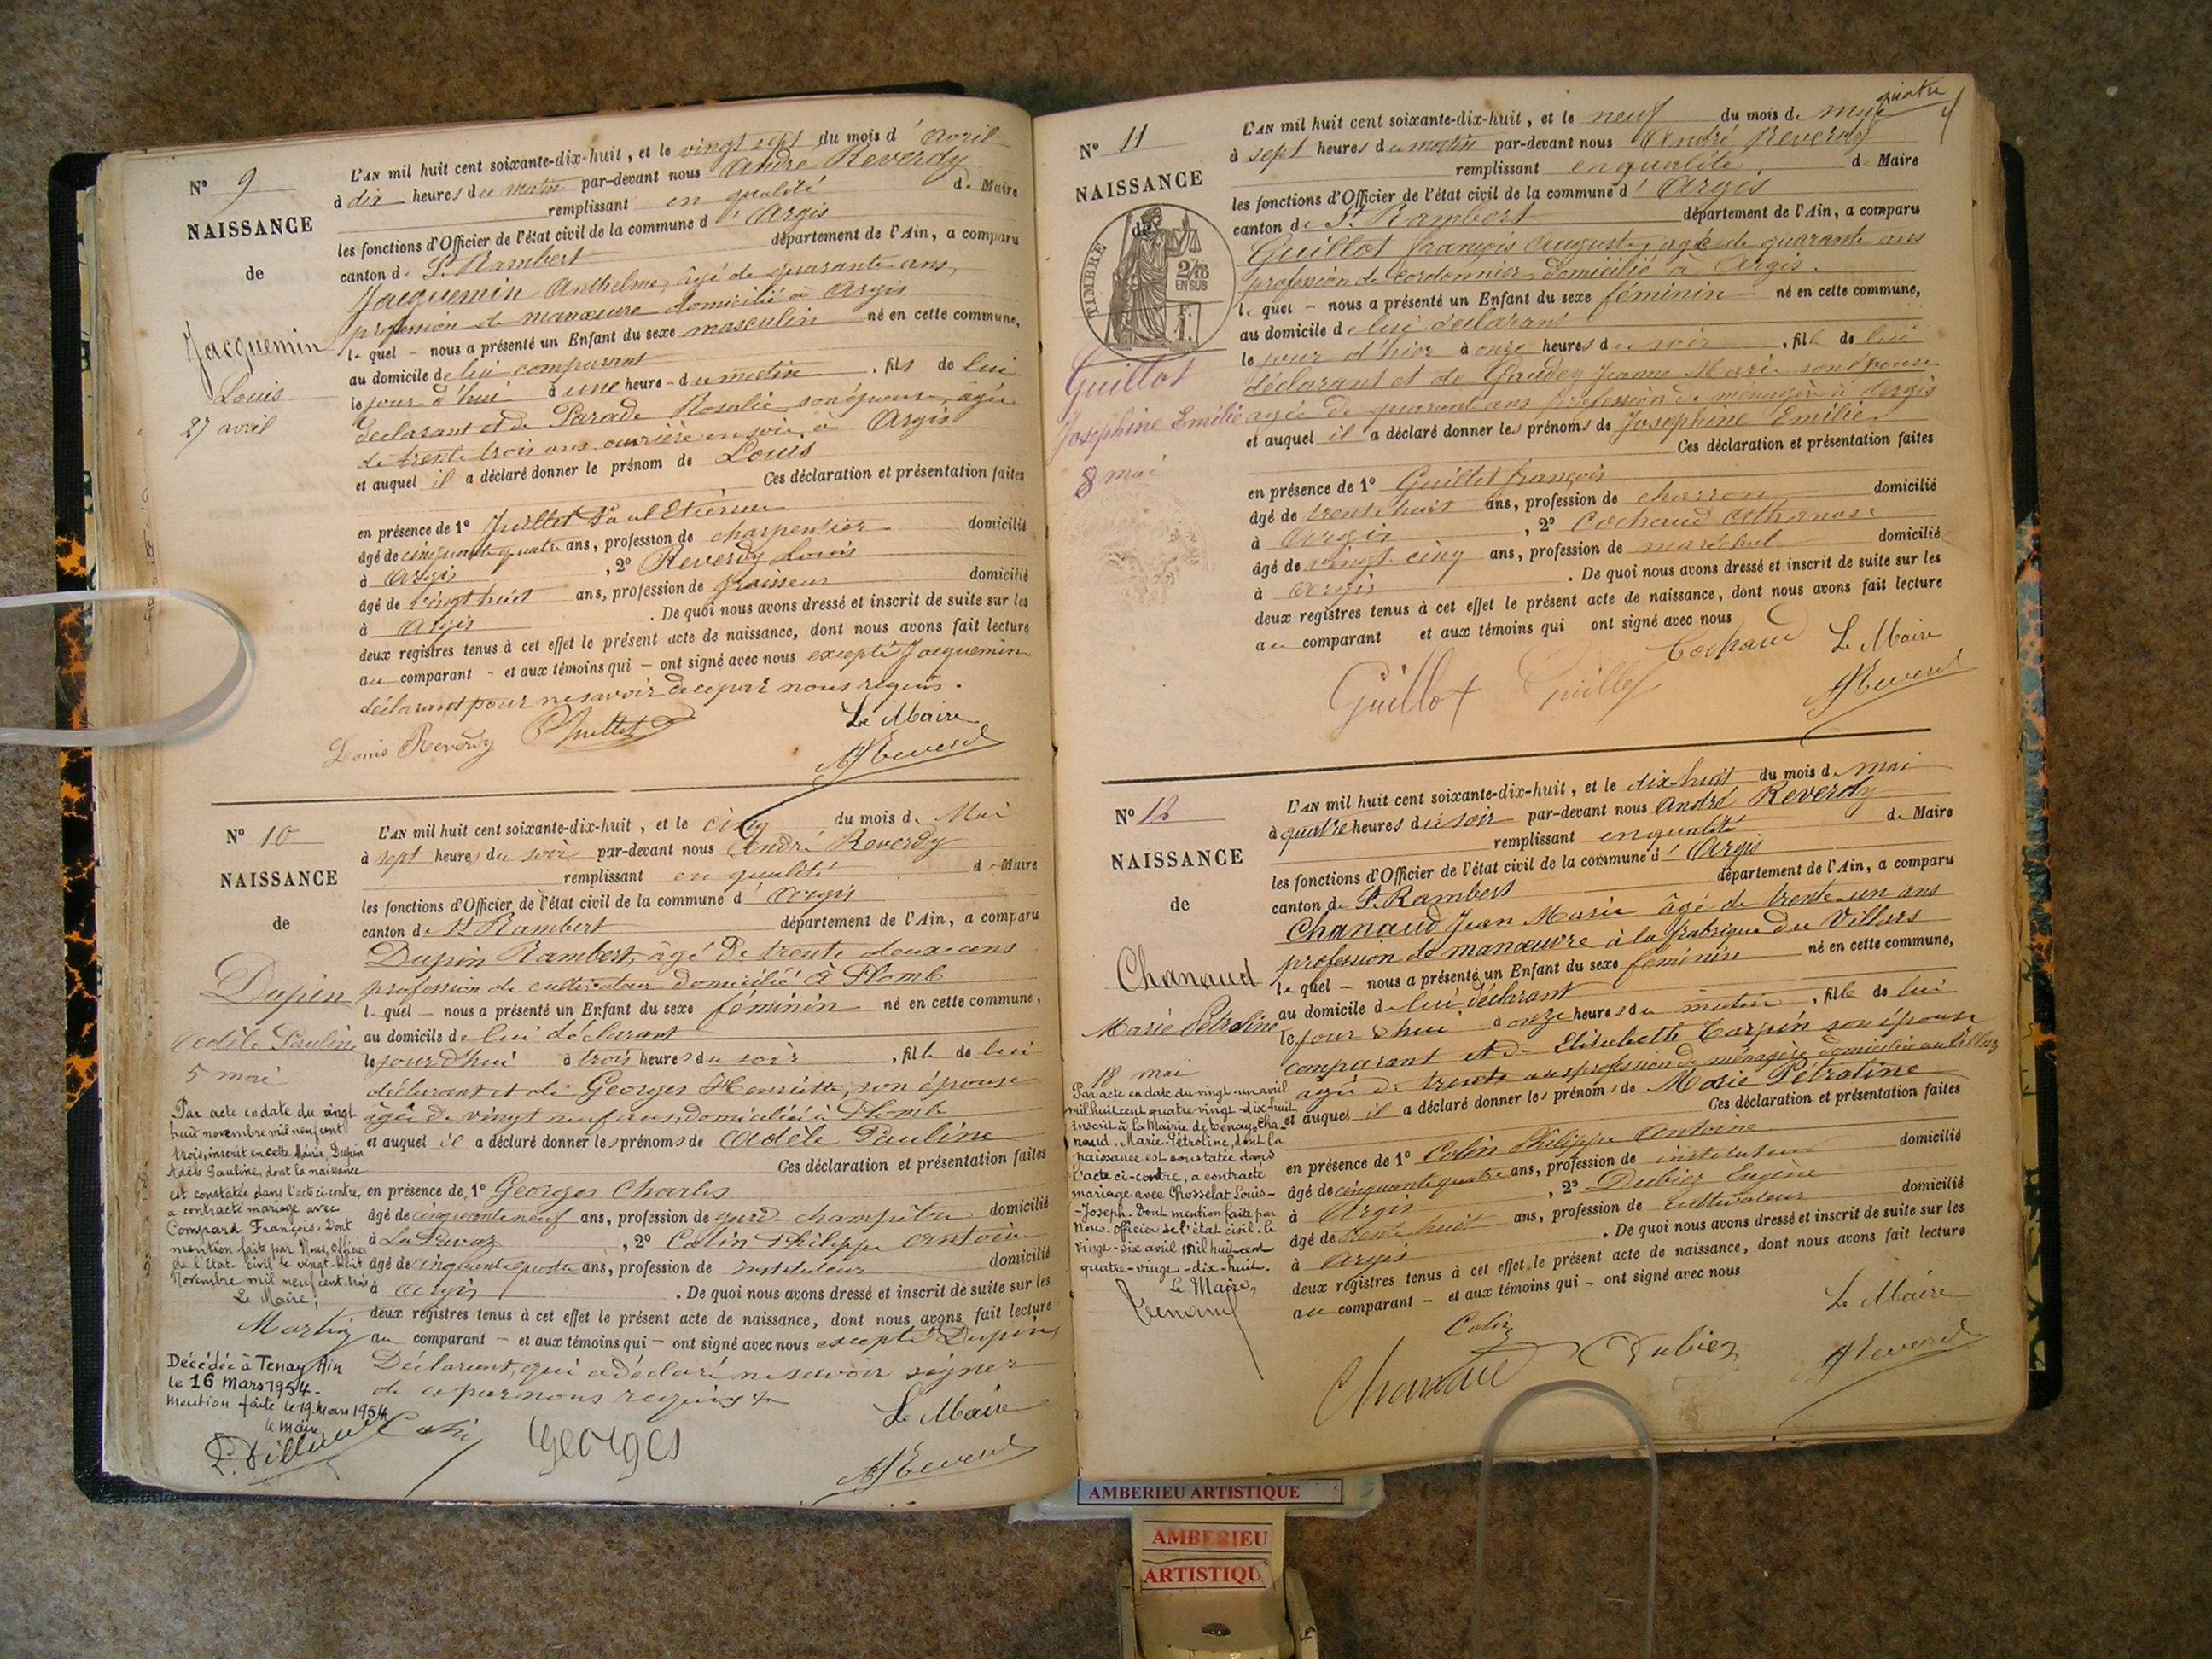 N° 9
NAISSANCE
de
Jacquemin
Louis
27 avril
L'AN mil huit cent soixante-dix-huit, et le vingt sept du mois d'avril
à dix heures du matin par-devant nous André Reverdy
remplissant en qualité de Maire
les fonctions d'Officier de l'état civil de la commune d'Argis
canton de St Rambert département de l'Ain, a comparu
Jacquemin Anthelme, âgé de quarante ans,
profession de manœuvre domicilié à Argis
lequel - nous a présenté un Enfant du sexe masculin né en cette commune,
au domicile de lui comparant
le jour d'hui à une heure - du matin, fils de lui
déclarant et de Parade Rosalie, son épouse, âgée
de trente trois ans ouvrière en soie, à Argis
et auquel il a déclaré donner le prénom de Louis
Ces déclaration et présentation faites
en présence de 1° Juillet Paul Etienne
âgé de cinquante quatre ans, profession de charpentier domicilié
à Argis, 2° Reverdy Louis
âgé de vingt huit ans, profession de graisseur domicilié
à Argis. De quoi nous avons dressé et inscrit de suite sur les
deux registres tenus à cet effet le présent acte de naissance, dont nous avons fait lecture
au comparant - et aux témoins qui - ont signé avec nous excepté Jacquemin
déclarant pour ne savoir de ce par nous requis.
Louis Reverdy P Juillet Le Maire
A Reverd
N° 10
NAISSANCE
de
Dupin
Adèle Pauline
5 mai
Par acte en date du vingt-
huit novembre mil neuf cent
trois, inscrit en cette Mairie, Dupin
Adèle Pauline, dont la naissance
est constatée dans l'acte ci-contre,
a contracté mariage avec
Compard François. Dont
mention faite par Nous, Officier
de l'Etat-civil le vingt-huit
Novembre mil neuf cent trois
Le Maire,
Martin
Décédée à Tenay Ain
le 16 Mars 1954.
Mention faite le 19 Mars 1954
le maire
L'AN mil huit cent soixante-dix-huit, et le cinq du mois de Mai
à sept heures du soir par-devant nous André Reverdy
remplissant en qualité de Maire
les fonctions d'Officier de l'état civil de la commune d'Argis
canton de St Rambert département de l'Ain, a comparu
Dupin Rambert, âgé de trente deux ans
profession de cultivateur domicilié à Plomb
lequel - nous a présenté un Enfant du sexe féminin né en cette commune,
au domicile de lui déclarant
le jour d'hui à trois heures du soir, fille de lui
déclarant et de Georges Henriette, son épouse
âgée de vingt neuf ans, domiciliée à Plomb
et auquel il a déclaré donner les prénoms de Adèle Pauline
Ces déclaration et présentation faites
en présence de 1° Georges Charles
âgé de cinquante neuf ans, profession de garde-champêtre domicilié
à, 2° Colin Philippe Antoine
âgé de cinquante quatre ans, profession de instituteur domicilié
à Argis. De quoi nous avons dressé et inscrit de suite sur les
deux registres tenus à cet effet le présent acte de naissance, dont nous avons fait lecture
au comparant - et aux témoins qui - ont signé avec nous excepté Dupin,
Déclarant, qui a déclaré ne savoir signer
de ce par nous requis
Colin Georges Le Maire
A Reverd
quatre
N° 11
NAISSANCE
de
TIMBRE
2/10
EN SUS
F.
1.
Guillot
Joséphine Emélie
8 mai
L'AN mil huit cent soixante-dix-huit, et le neuf du mois de mai
à sept heures du matin par-devant nous André Reverdy
remplissant en qualité de Maire
les fonctions d'Officier de l'état civil de la commune d'Argis
canton de St Rambert département de l'Ain, a comparu
Guillot françois Auguste, âgé de quarante ans
profession de cordonnier domicilié à Argis.
lequel - nous a présenté un Enfant du sexe féminin né en cette commune,
au domicile de lui déclarant
le jour d'hier à onze heures du soir, fille de lui
déclarant et de Gaudey Jeanne Marie son épouse
agée de quarante ans profession de ménagère à Argis
et auquel il a déclaré donner les prénoms de Joséphine Emilie
Ces déclaration et présentation faites
en présence de 1° Guillet françois
âgé de trente huit ans, profession de charron domicilié
à Argis, 2° Cochaud Athanase
âgé de vingt cinq ans, profession de maréchal domicilié
à Argis. De quoi nous avons dressé et inscrit de suite sur les
deux registres tenus à cet effet le présent acte de naissance, dont nous avons fait lecture
au comparant et aux témoins qui ont signé avec nous
Guillot Guillet Cochaud Le Maire
A Reverd
N° 12
NAISSANCE
de
Chanaud
Marie Pétroline
18 mai
Par acte en date du vingt-un avril
mil huit cent quatre-vingt-dix-huit
inscrit à la Mairie de Tenay, Cha-
naud, Marie-Pétroline, dont la
naissance est constatée dans
l'acte ci-contre, a contracté
mariage avec Chosselat Louis-
-Joseph. Dont mention faite par
Nous, officier de l'état civil, le
vingt-six avril mil huit cent
quatre-vingt-dix-huit.
Le Maire,
L'AN mil huit cent soixante-dix-huit, et le dix-huit du mois de mai
à quatre heures du soir par-devant nous André Reverdy
remplissant en qualité de Maire
les fonctions d'Officier de l'état civil de la commune d'Argis
canton de St Rambert département de l'Ain, a comparu
Chanaud Jean Marie âgé de trente un ans
profession de manœuvre à la fabrique du Villars
lequel - nous a présenté un Enfant du sexe féminin né en cette commune,
au domicile de lui déclarant
le jour d'hui à onze heures du matin, fille de lui
comparant et de Elisabette Carpin son épouse
agée de trente ans profession de ménagère domiciliée au Villars
et auquel il a déclaré donner les prénoms de Marie Pétroline
Ces déclaration et présentation faites
en présence de 1° Colin Philippe Antoine
âgé de cinquante quatre ans, profession de instituteur domicilié
à Argis, 2° Dubiez Eugène
âgé de trente huit ans, profession de cultivateur domicilié
à Argis. De quoi nous avons dressé et inscrit de suite sur les
deux registres tenus à cet effet le présent acte de naissance, dont nous avons fait lecture
au comparant - et aux témoins qui - ont signé avec nous
Colin Le Maire
Chanaud Dubiez A Reverd
AMBERIEU ARTISTIQUE
AMBERIEU
ARTISTIQU